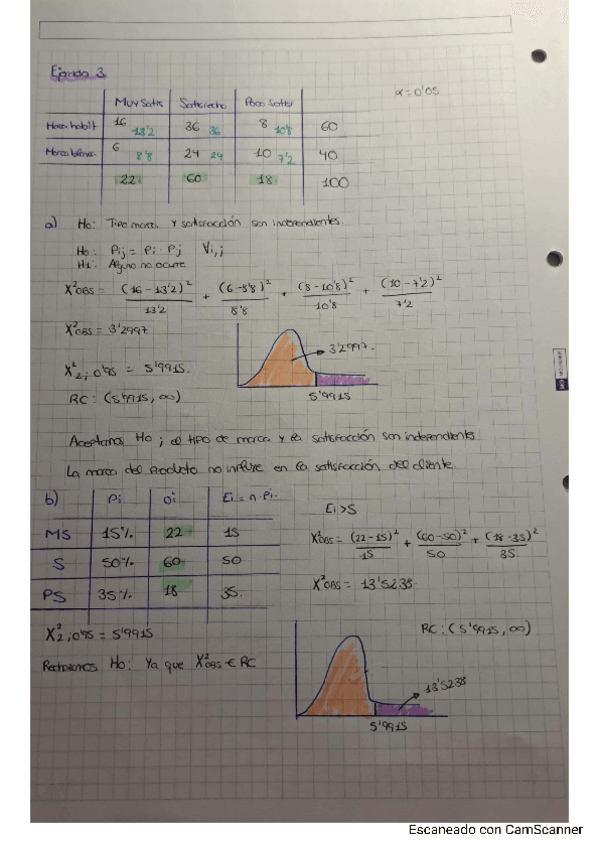 Ejercicio 3
α = 0'05
Muy Satis Satisfecho Poco Satisf
Marca habit 16 13'2 36 36 8 10'8 60
Marca blanca 6 8'8 24 24 10 7'2 40
22 60 18 100
a) Ho: Tipo marca y satisfacción son independientes.
Ho: Pij = Pi · Pj ∀i,j
H1: Alguno no ocurre
X²OBS = (16-13'2)²/13'2 + (6-8'8)²/8'8 + (8-10'8)²/10'8 + (10-7'2)²/7'2
X²OBS = 3'2997
3'2997.
X²2; 0'95 = 5'9915.
5'9915
RC: (5'9915, ∞)
Aceptamos Ho; el tipo de marca y la satisfacción son independientes
La marca del producto no influye en la satisfacción del cliente.
b) Pi Oi Ei = n·Pi
MS 15% 22 15
S 50% 60 50
PS 35% 18 35.
Ei > 5
X²OBS = (22-15)²/15 + (60-50)²/50 + (18-35)²/35.
X²OBS = 13'5238.
X²2; 0'95 = 5'9915
RC: (5'9915, ∞)
Rechazamos Ho: Ya que X²OBS ∈ RC
13'5238
5'9915
Escaneado con CamScanner